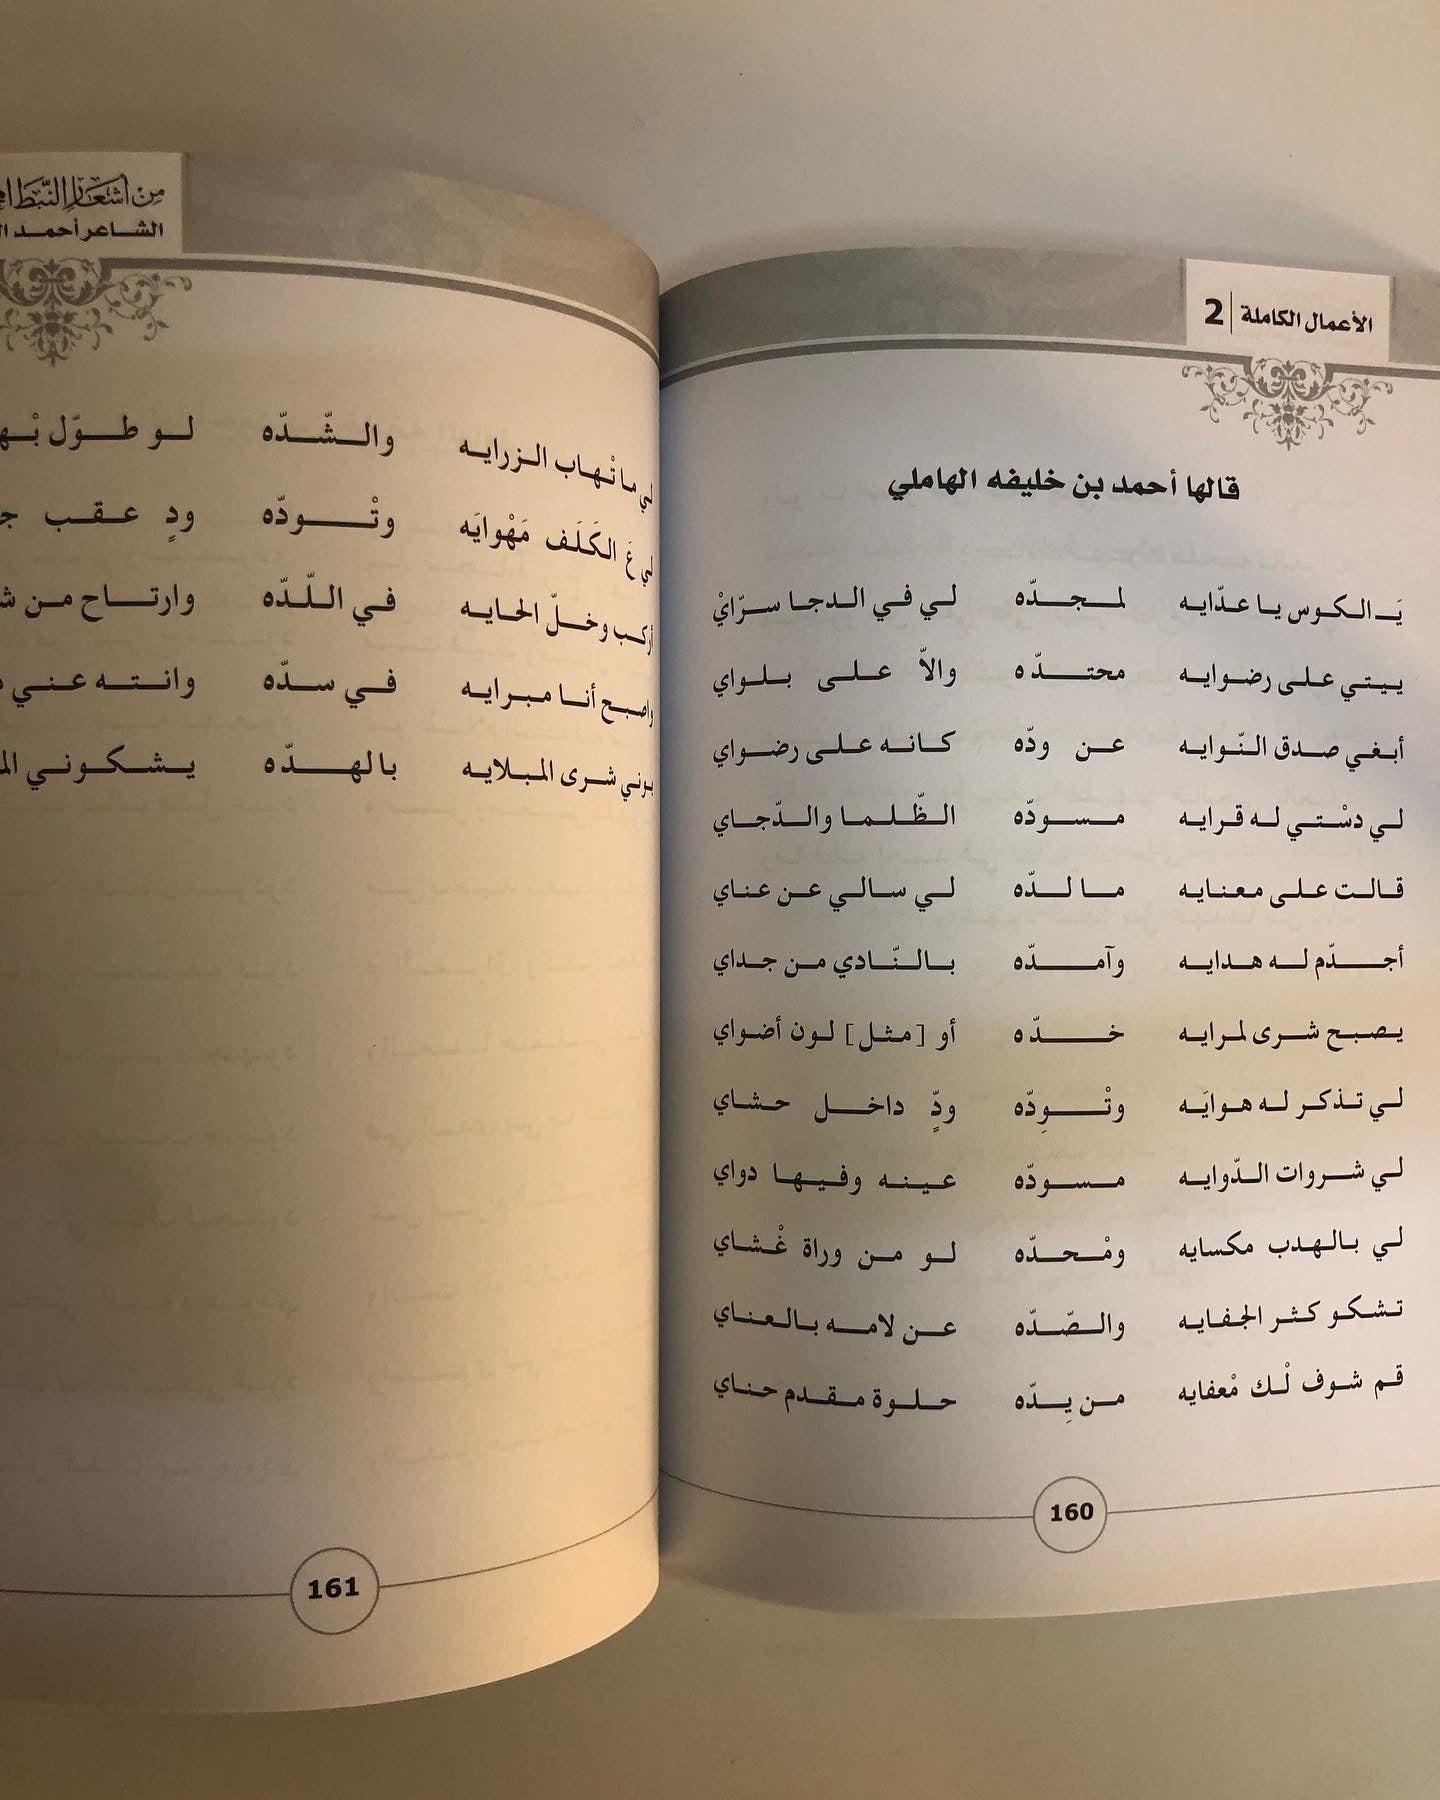 الأعمال الكاملة | 2
قالها أحمد بن خليفه الهاملي
يَـ الكوس يا عدّايه لمجدّه لي في الدجا سرّايْ
ييتي على رضوايه محتدّه والاّ على بلواي
أبغي صدق النّوايه عن ودّه كانه على رضواي
لي دسْتي له قرايه مسودّه الظّلما والدّجاي
قالت على معنايه ما لدّه لي سالي عن عناي
أجدّم له هدايه وآمدّه بالنّادي من جداي
يصبح شرى لمرايه خدّه أو [مثل] لون أضواي
لي تذكر له هوايَه وتْودِّه ودٍّ داخل حشاي
لي شروات الدّوايه مسودّه عينه وفيها دواي
لي بالهدب مكسايه ومْحدّه لو من وراة غْشاي
تشكو كثر الجفايه والصّدّه عن لامه بالعناي
قم شوف لْك مْعفايه من يِدّه حلوة مقدم حناي
160
من أشعار النبط
الشاعر أحمد
لي ما تْهاب الزرايه والشّدّه لو طوّل
لي عَ الكَلَف مَهْوايَه وتْودّه ودٍ عقب
أركب وخلّ الحايه في اللّدّه وارتاح من
واصبح أنا مبرايه في سدّه وانته عني
شرى المبلايه بالهدّه يشكوني
161